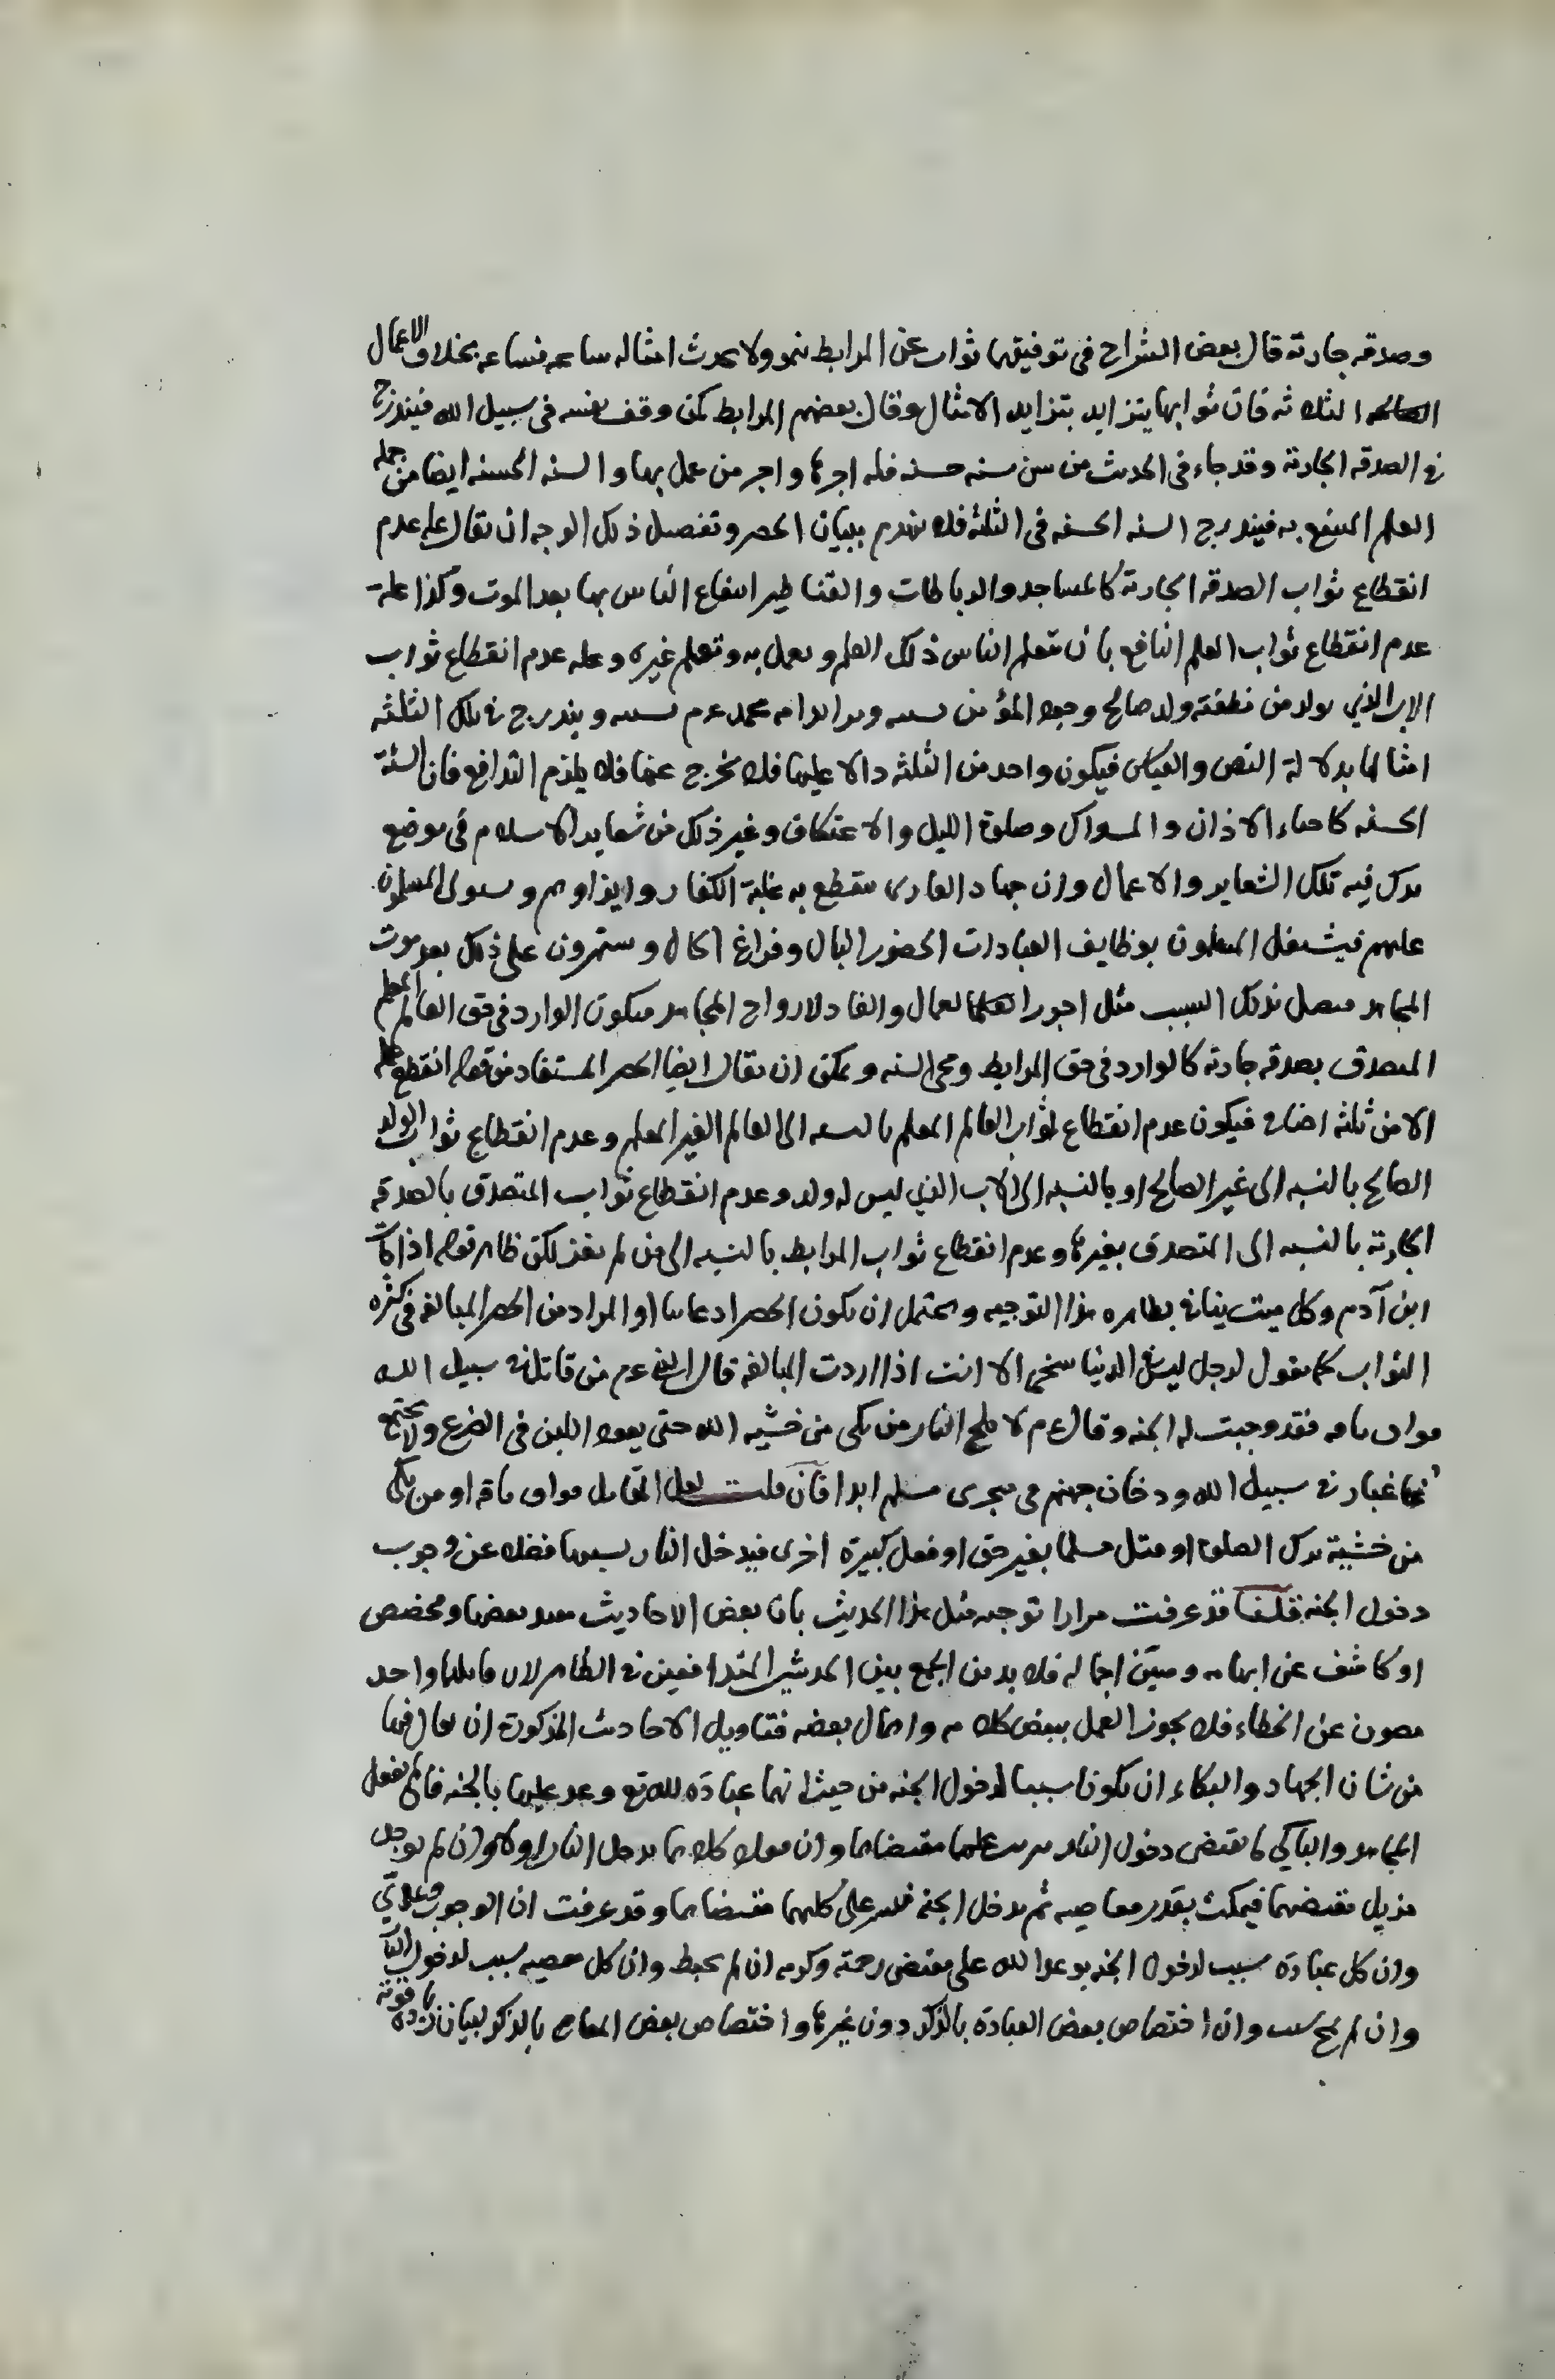 وصدقه جارية قال بعض الشراح فى توفيقهما ثواب عن المرابط ينمو ولا يحدث امثاله ساعه فساعه بخلاف الاعمال
الصالحه الثلاثه فان ثوابها يتزايد بتزايد الامثال وقال بعضهم المرابط كمن وقف نفسه فى سبيل الله فيندرج
فى الصدقه الجارية وقد جاء فى الحديث من سن سنه حسنه فله اجرها واجر من عمل بها والسنه الحسنه ايضا من جمله
العلم المنتفع به فيندرج السنه الحسنه فى الثلثه فلا ينهدم ببيان الحصر وتفصيل ذلك الوجه ان يقال علة عدم
انقطاع ثواب الصدقه الجارية كالمساجد والرباطات والقناطير انتفاع الناس بها بعد الموت وكذا علة
عدم انقطاع ثواب العلم النافع بان يتعلم الناس ذلك العلم ويعمل به وتعلم غيره وعله عدم انقطاع ثواب
الاب الذي يولد من نطفته ولد صالح وجود المؤمن بسببه ويندرج فى تلك الثلثه
امثالها بدلالة النص والقياس فيكون واحد من الثلثه دالا عليها فلا يخرج عنها فلا يلزم التدافع فان السنة
الحسنه كاحياء الاذان والمسواك وصلوة الليل والاعتكاف وغير ذلك من شعاير الاسلام فى موضع
يترك فيه تلك الشعاير والاعمال وان جهاد الغازى ينقطع به غلبة الكفار وايذاوهم ويستولى المسلمون
عليهم فيشتغل المسلمون بوظايف العبادات الحضور البال وفراغ الحال ويستمرون على ذلك بعد موت
المجاهد فيصل بذلك السبب مثل اجور العمال لارواح المجاهد فيكون الوارد فى حق العالم المعلم
المتصدق بصدقه جارية كالوارد فى حق المرابط ومحى السنه ويمكن ان يقال ايضا الحصر المستفاد من قوله انقطع عمله
الا من ثلثه اضافى فيكون عدم انقطاع ثواب العالم المعلم بالنسبه الى العالم الغير المعلم وعدم انقطاع ثواب الولد
الصالح بالنسبه الى غير الصالح او بالنسبه الى الاب الذى ليس له ولد وعدم انقطاع ثواب المتصدق بالصدقه
الجارية بالنسبه الى المتصدق بغيرها وعدم انقطاع ثواب المرابط بالنسبه الى من لم يغز لكن ظاهر قوله اذا مات
ابن آدم وكل ميت ينافى بظاهره هذا التوجيه ويحتمل ان يكون الحصر ادعائيا او المراد من الحصر المبالغه فى كثره
الثواب كما يقول لرجل ليس فى الدنيا سخى الا انت اذا اردت المبالغه قال النبى عم من قاتل فى سبيل الله
فواق ناقه فقد وجبت له الجنه وقال عم لا يلج النار من بكى من خشيه الله حتى يعود اللبن فى الضرع ولا يجتمع
غبار فى سبيل الله ودخان جهنم فى منخرى مسلم ابدا فان قلت لعل المقاتل فواق ناقه او من بكى
من خشية ترك الصلوة او قتل مسلما بغير حق او فعل كبيرة اخرى فيدخل النار بسببها فضلا عن وجوب
دخول الجنه قلنا قد عرفت مرارا توجيه مثل هذا الحديث بان بعض الاحاديث مقيد بعضها ومخصص
او كاشف عن ابهامه ومبين اجماله فلا بد من الجمع بين الحديثين المتدافعين فى الظاهر لان قايلهما واحد
مصون عن الخطاء فلا يجوز العمل ببعض كلامه واهمال بعضه فتاويل الاحاديث المذكورة ان يقال فيها
من شان الجهاد والبكاء ان يكونا سببا لدخول الجنه من حيث انهما عبادة لله تع وعد عليها بالجنه فان لم يفعل
المجاهد والباكي ما يقتضى دخول النار مقتضاهما وان فعلا يدخل النار اولا وان لم يوجد
مزيل مقتضيهما فيمكث بقدر معاصيه ثم يدخل الجنه على كليهما مقتضاهما وقد عرفت ان الوجوب وعدى
وان كل عبادة سبب لدخول الجنه بوعد الله على مقتضى رحمته وكرمه ان لم يحبط وان كل معصيه سبب لدخول النار
وان لم يمح بسبب وان اختصاص بعض العبادة بالذكر دون غيرها واختصاص بعض المعاصى بالذكر لبيان زيادة
قوته